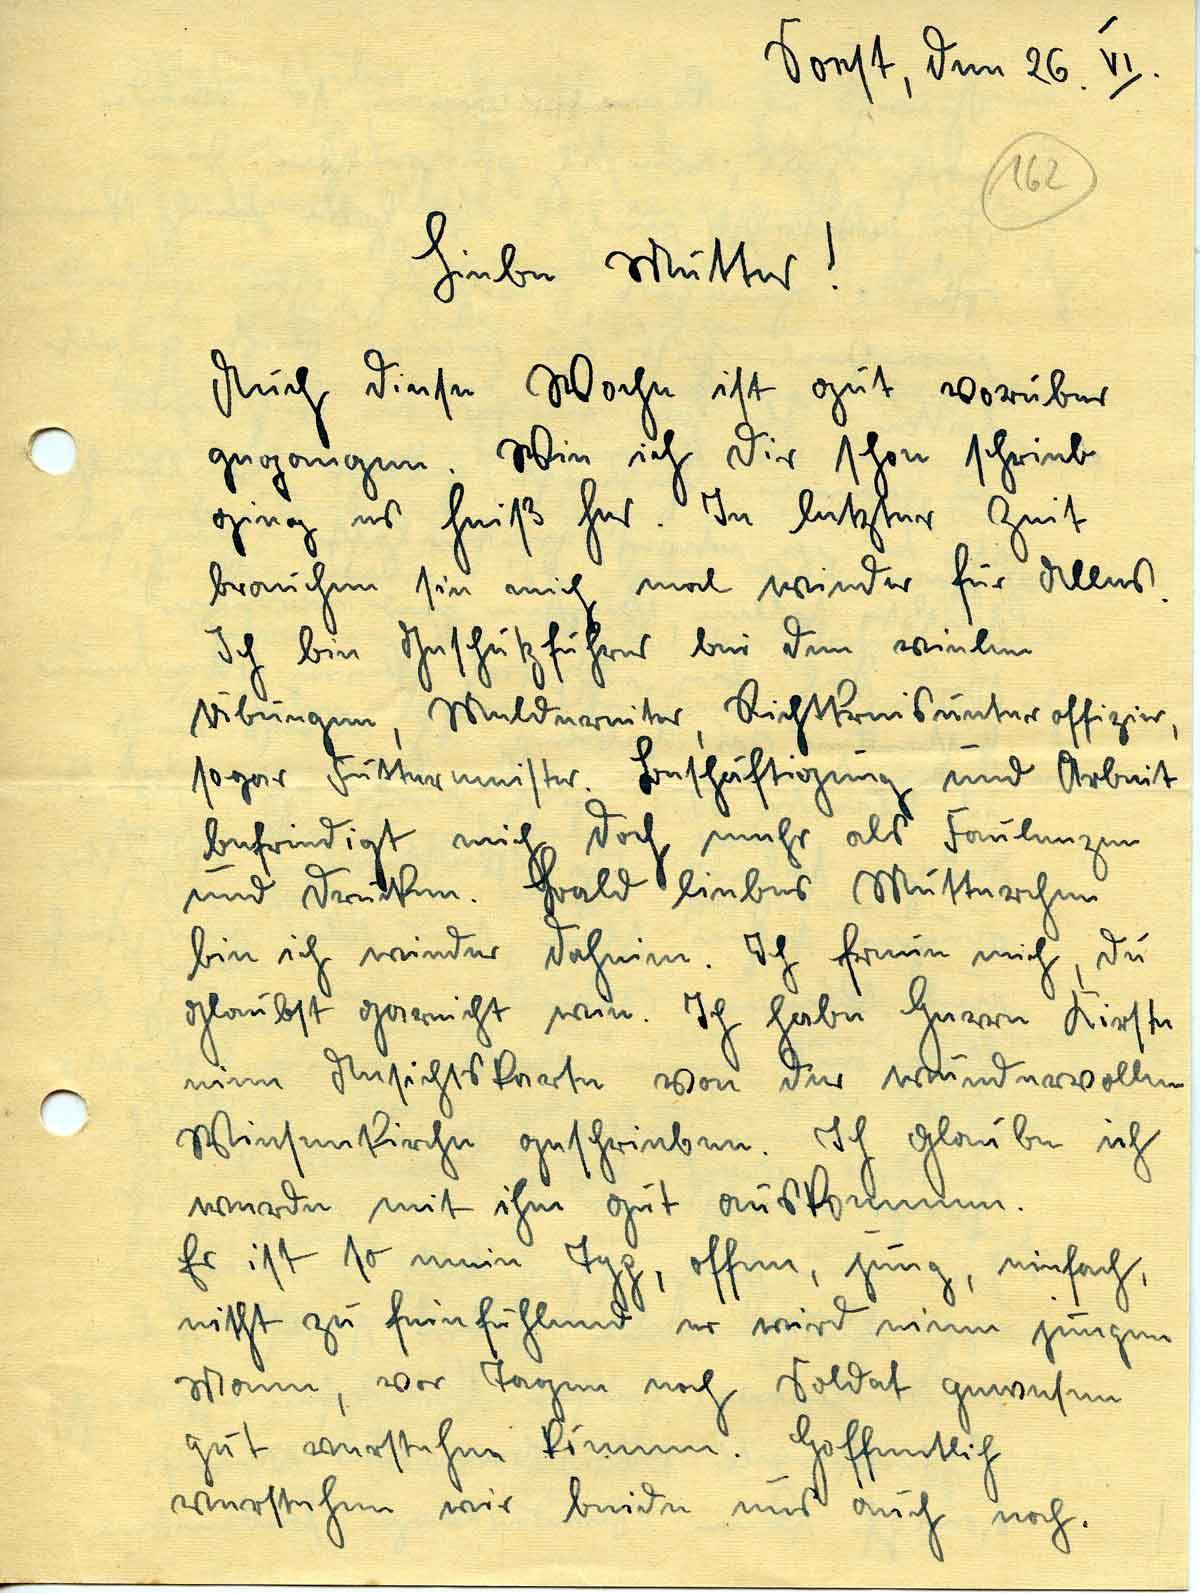 Soest, den 26. VI.
162
Liebe Mutter!
Auch diese Woche ist gut vorüber
gegangen. Wie ich Dir schon schrieb
ging es heiß her. In letzter Zeit
brauchen sie mich mal wieder für Alles.
Ich bin Geschützführer bei den vielen
Übungen, Meldereiter, Richtkreisunteroffizier,
sogar Futtermeister. Beschäftigung und Arbeit
befriedigt mich doch mehr als Faulenzen
und Drücken. Bald liebes Mutterchen
bin ich wieder daheim. Ich freue mich, du
glaubst garnicht wie. Ich habe Herrn Kirste
eine Ansichtskarte von der wundervollen
Wiesenkirche geschrieben. Ich glaube ich
werde mit ihm gut auskommen.
Er ist so mein Typ, offen, jung, einfach,
nicht zu feinfühlend er wird einen jungen
Mann, vor Tagen noch Soldat gewesen
gut verstehen können. Hoffentlich
verstehen wir beide uns auch noch.